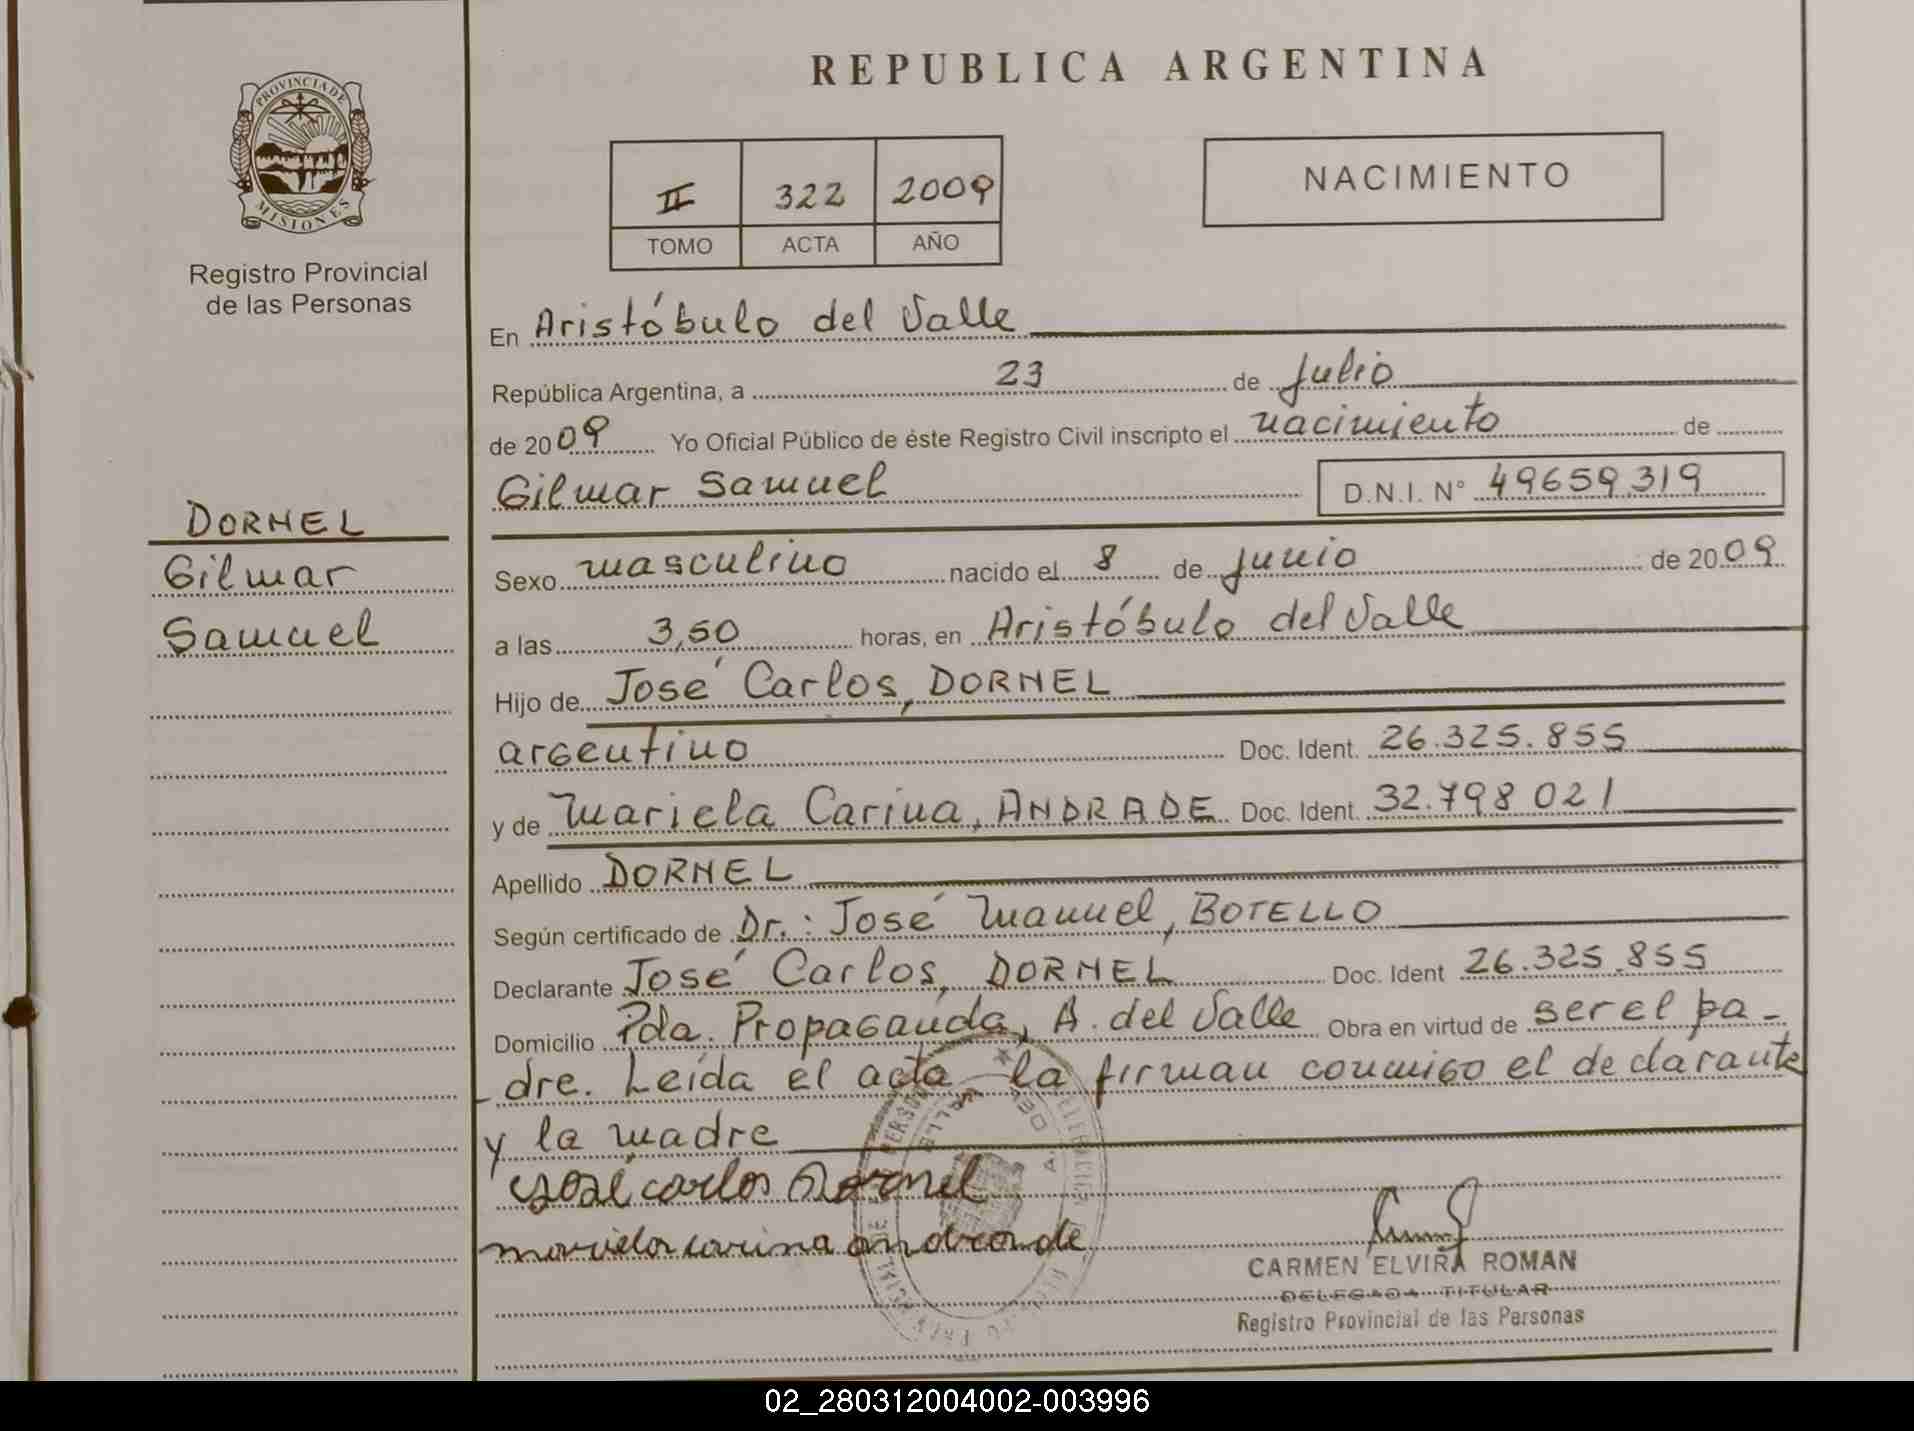 REPUBLICA ARGENTINA
PROVINCIA DE
MISIONES
Registro Provincial
de las Personas
II 322 2009
TOMO ACTA AÑO
NACIMIENTO
En Aristóbulo del Valle
República Argentina, a 23 de Julio
de 2009 Yo Oficial Público de éste Registro Civil inscripto el nacimiento de
Gilmar Samuel D.N.I. N° 49659319
DORNEL
Gilmar
Samuel
Sexo masculino nacido el 8 de junio de 2009
a las 3,50 horas, en Aristóbulo del Valle
Hijo de José Carlos, DORNEL
argentino Doc. Ident. 26.325.855
y de Mariela Carina, ANDRADE Doc. Ident. 32.798 021
Apellido DORNEL
Según certificado de Dr.: José Manuel, BOTELLO
Declarante José Carlos, DORNEL Doc. Ident 26.325.855
Domicilio Pda. Propaganda, A. del Valle Obra en virtud de ser el pa-
dre. Leída el acta la firman conmigo el declarante
y la madre
José carlos Dornel
mariela carina andrade
CARMEN ELVIRA ROMAN
DELEGADA TITULAR
Registro Provincial de las Personas
02_280312004002-003996